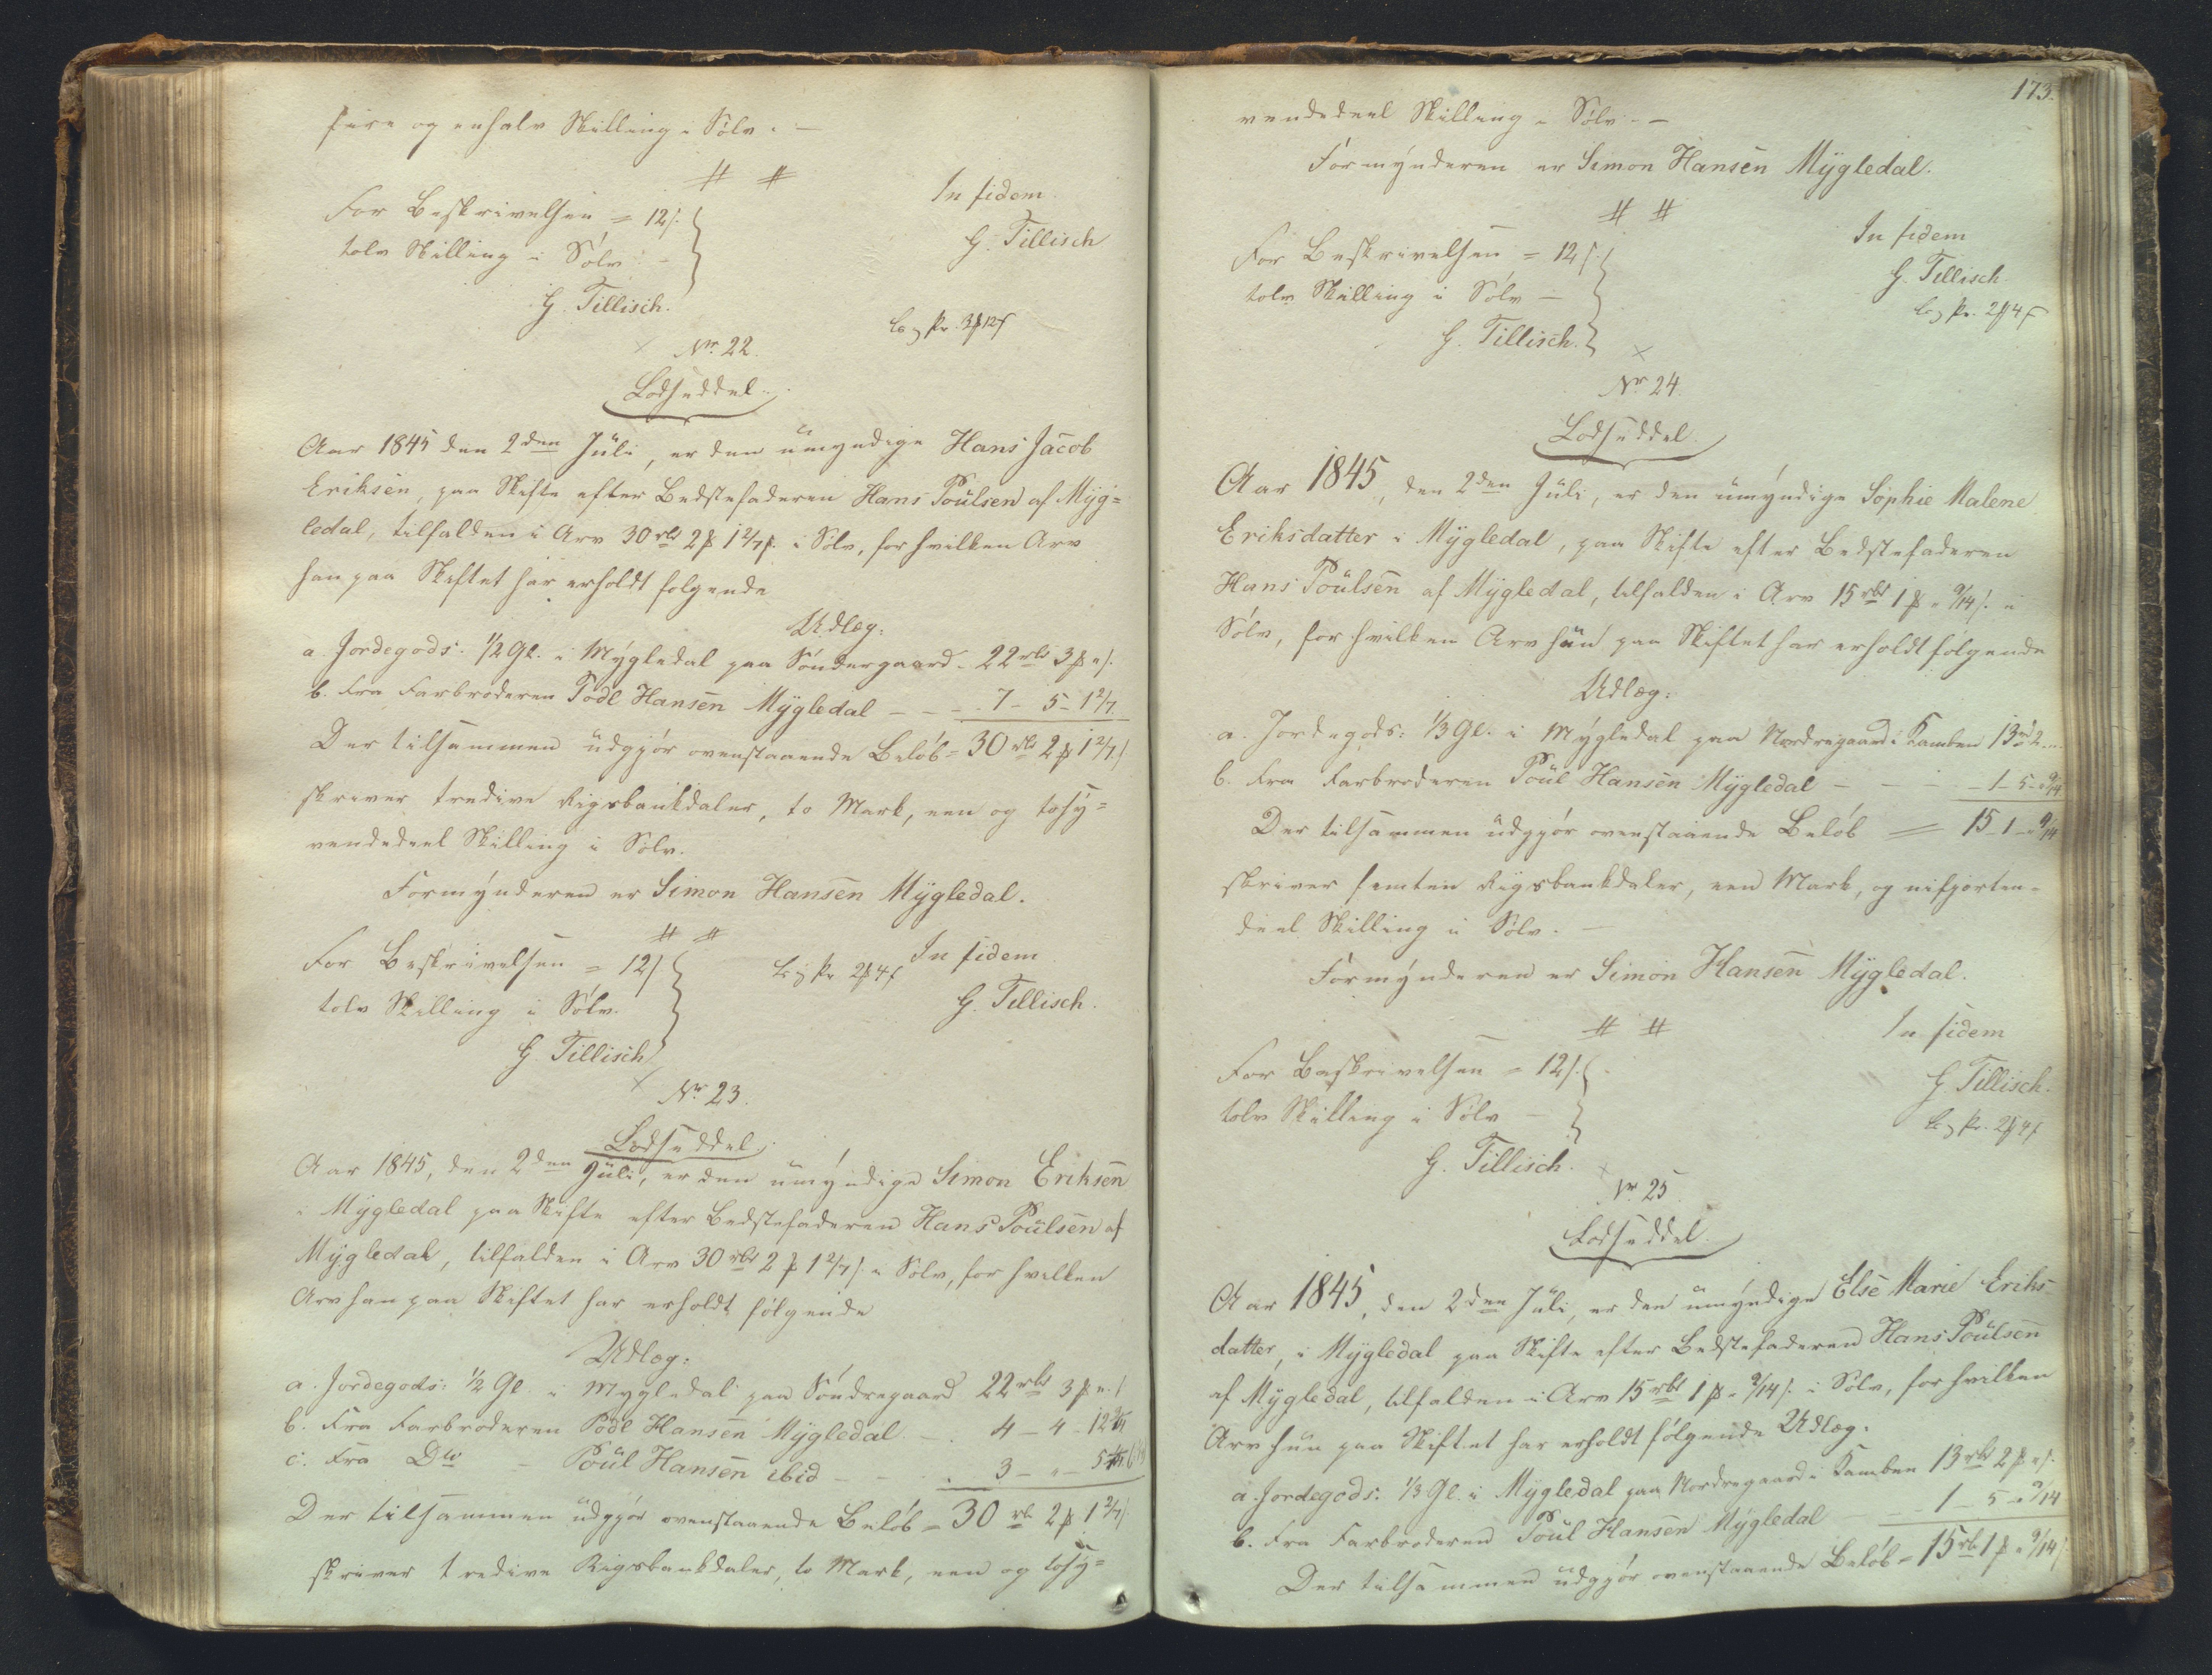 fire og en halv Skilling i Sølv. —
# #
For Beskrivelsen = 12 s.
In fidem
tolv Skilling i Sølv. -
G. Tillisch
G. Tillisch.
No 22.
Lodseddel.
Aar 1845 den 2den Juli, er den umyndige Hans Jacob
Eriksen, paa Skifte efter Bedstefaderen Hans Poulsen af Myg=
ledal, tilfalden i Arv 30 rbd 2 ℔ 1 2/7 s. i Sølv, for hvilken Arv
han paa Skiftet har erholdt følgende
Udlæg:
a. Jordegods: 1/2 Gl. i Mygledal paa Søndergaard - 22 rbd 3 ℔ " s.
b. Fra Farbroderen Poul Hansen Mygledal - - - 7 - 5 - 1 2/7
Der tilsammen udgjør ovenstaaende Beløb = 30 rbd 2 ℔ 1 2/7 s.
skriver tredive Rigsbankdaler, to Mark, een og tosy=
vendedeel Skilling i Sølv.
Formynderen er Simon Hansen Mygledal.
# #
For Beskrivelsen = 12 s
In fidem
tolv Skilling i Sølv.
G. Tillisch.
G. Tillisch
No 23.
Lodseddel.
Aar 1845, den 2den Juli, er den umyndige Simon Eriksen
i Mygledal paa Skifte efter Bedstefaderen Hans Poulsen af
Mygledal, tilfalden i Arv 30 rbd 2 ℔ 1 2/7 s. i Sølv, for hvilken
Arv han paa Skiftet har erholdt følgende
Udlæg:
a. Jordegods: 1/2 Gl. i Mygledal paa Søndregaard 22 rbd 3 ℔ " s
b. Fra Farbroderen Poul Hansen Mygledal - . 4 - 4 - 12
c. Fra Do - Poul Hansen ibid - - . 3 - " - 5
Der tilsammen udgjør ovenstaaende Beløb = 30 rb 2 ℔ 1 2/7 s.
skriver tredive Rigsbankdaler, to Mark, een og tosy=
173.
vendedeel Skilling i Sølv. —
Formynderen er Simon Hansen Mygledal.
# #
For Beskrivelsen = 12 s.
In fidem
tolv Skilling i Sølv —
G. Tillisch.
G. Tillisch.
No 24.
Lodseddel.
Aar 1845, den 2den Juli, er den umyndige Sophie Malene
Eriksdatter i Mygledal, paa Skifte efter Bedstefaderen
Hans Poulsen af Mygledal, tilfalden i Arv 15 rbd 1 ℔ " 9/14 s. i
Sølv, for hvilken Arv hun paa Skiftet har erholdt følgende
Udlæg:
a. Jordegods: 1/3 Gl. i Mygledal paa Nordregaard i Kamben 13 rd 2 - "
b. Fra Farbroderen Poul Hansen Mygledal - - - - 1 - 5 - " 9/14
Der tilsammen udgjør ovenstaaende Beløb = 15 - 1 - " 9/14
skriver femten Rigsbankdaler, een Mark, og nifjorten-
deel Skilling i Sølv. —
Formynderen er Simon Hansen Mygledal.
# #
In fidem
For Beskrivelsen = 12 s.
G. Tillisch.
tolv Skilling i Sølv —
G. Tillisch.
No 25.
Lodseddel.
Aar 1845, den 2den Juli, er den umyndige Else Marie Eriks-
datter, i Mygledal paa Skifte efter Bedstefaderen Hans Poulsen
af Mygledal, tilfalden i Arv 15 rbd 1 ℔ " 9/14 s. i Sølv, for hvilken
Arv hun paa Skiftet har erholdt følgende Udlæg:
a. Jordegods: 1/3 Gl. i Mygledal paa Nordregaard i Kamben 13 rbd 2 ℔ " s.
b. Fra Farbroderen Poul Hansen Mygledal - 1 - 5 - " 9/14
Der tilsammen udgjør ovenstaaende Beløb = 15 rb 1 ℔ " 9/14 s.